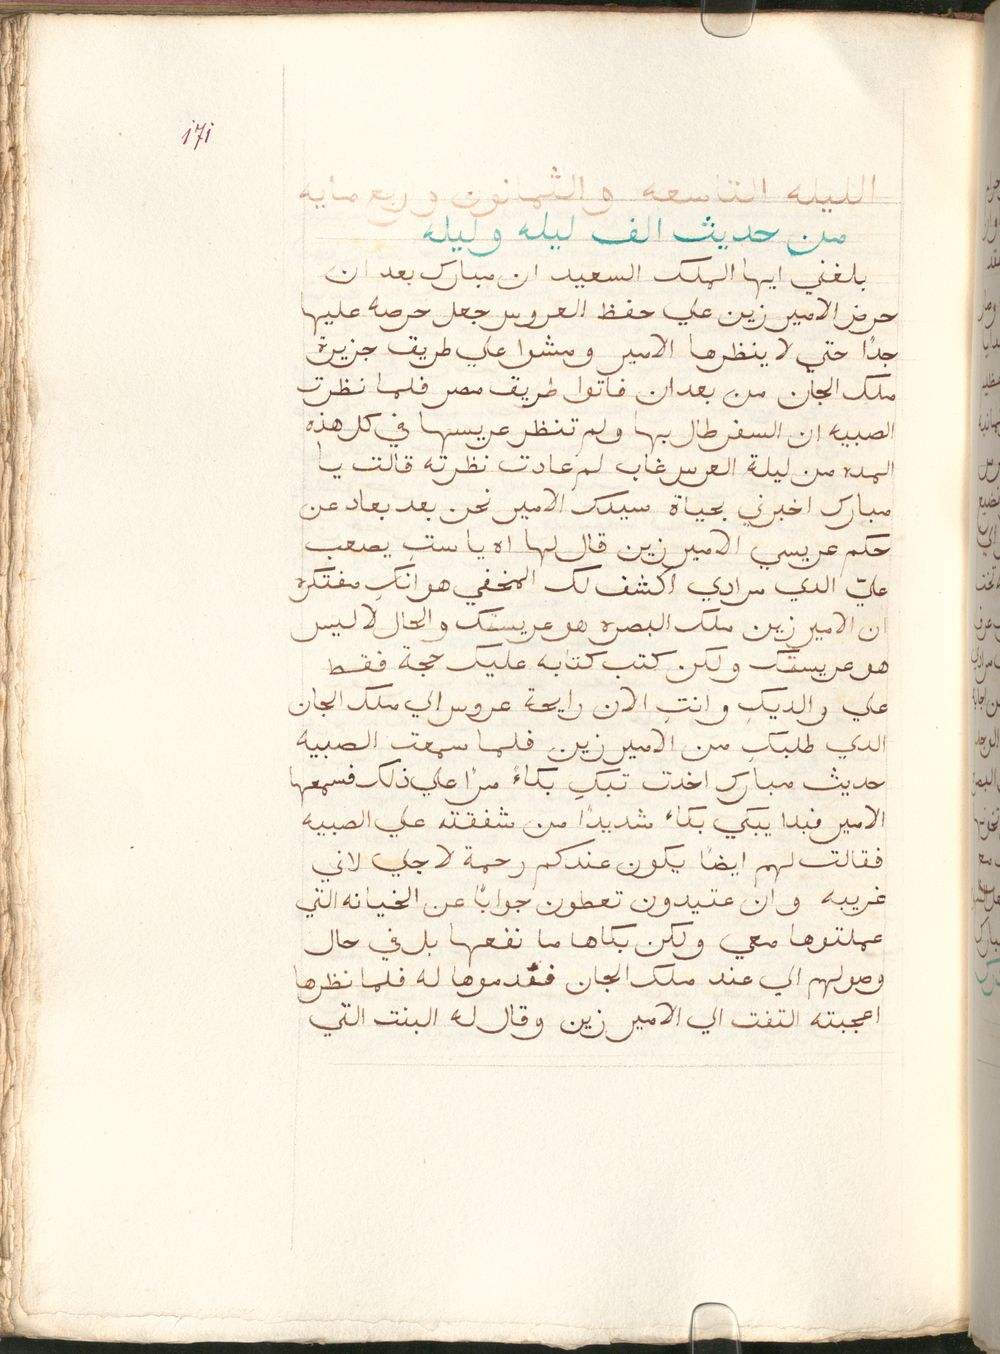 171
الليله التاسعه والثمانون وربع مايه
من حديث الف ليله وليله
بلغني ايها الملك السعيد ان مبارك بعد ان
حرض الامير زين علي حفظ العروس جعل حرصه عليها
جدًا حتي لا ينظرها الامير ومشوا علي طريق جزيرة
ملك الجان من بعد ان فاتوا طريق مصر فلما نظرت
الصبيه ان السفر طال بها ولم تنظر عريسها في كل هذه
المده من ليلة العرس غاب لم عادت نظرته قالت يا
مبارك اخبرني بحياة سيدك الامير نحن بعد بعاد عن
حكم عريسي الامير زين قال لها اه يا ستِ يصعب
عليّ الذي مرادي اكشف لك المخفي هو انكِ مفتكره
ان الامير زين ملك البصره هو عريسك والحال لا ليس
هو عريسك ولكن كتب كتابه عليك حجة فقط
علي والديكِ وانتِ الان رايحة عروس الي ملك الجان
الذي طلبكِ من الامير زين فلما سمعت الصبيه
حديث مبارك اخدت تبكِ بكاءً مرًا علي ذلك فسمعها
الامير فبدا يبكي بكاء شديدًا من شفقته علي الصبيه
فقالت لهم ايضًا يكون عندكم رحمة لاجلي لاني
غريبه وان عتيدون تعطون جوابًا عن الخيانه التي
عملتوها معي ولكن بكاها ما نفعها بل في حال
وصولهم الي عند ملك الجان فقدموها له فلما نظرها
اعجبته التفت الي الامير زين وقال له البنت التي